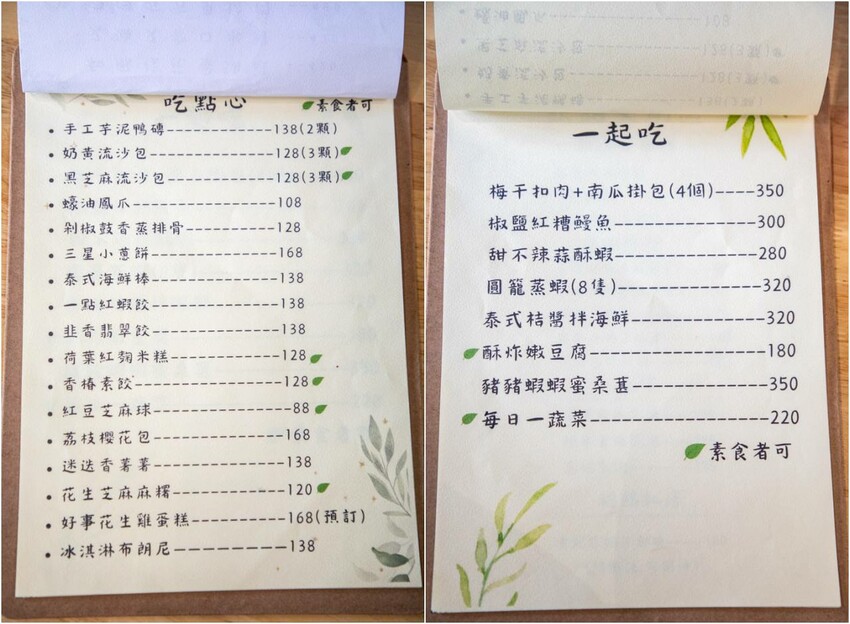 吃點心
素食者可
• 手工芋泥鴨磚------------138(2顆)
• 奶黃流沙包--------------128(3顆)
• 黑芝麻流沙包------------128(3顆)
• 蠔油鳳爪----------------108
• 剁椒鼓香蒸排骨----------128
• 三星小蔥餅--------------168
• 泰式海鮮棒--------------138
• 一點紅蝦餃--------------138
• 韭香翡翠餃--------------138
• 荷葉紅麴米糕------------128
• 香椿素餃----------------128
• 紅豆芝麻球---------------88
• 荔枝櫻花包--------------168
• 迷迭香薯薯--------------138
• 花生芝麻麻糬------------120
• 好事花生雞蛋糕----------168(預訂)
• 冰淇淋布朗尼------------138
一起吃
梅干扣肉+南瓜掛包(4個)----350
椒鹽紅糟鰻魚-------------300
甜不辣蒜酥蝦-------------280
圓籠蒸蝦(8隻)------------320
泰式桔醬拌海鮮-----------320
酥炸嫩豆腐---------------180
豬豬蝦蝦蜜桑葚-----------350
每日一蔬菜---------------220
素食者可